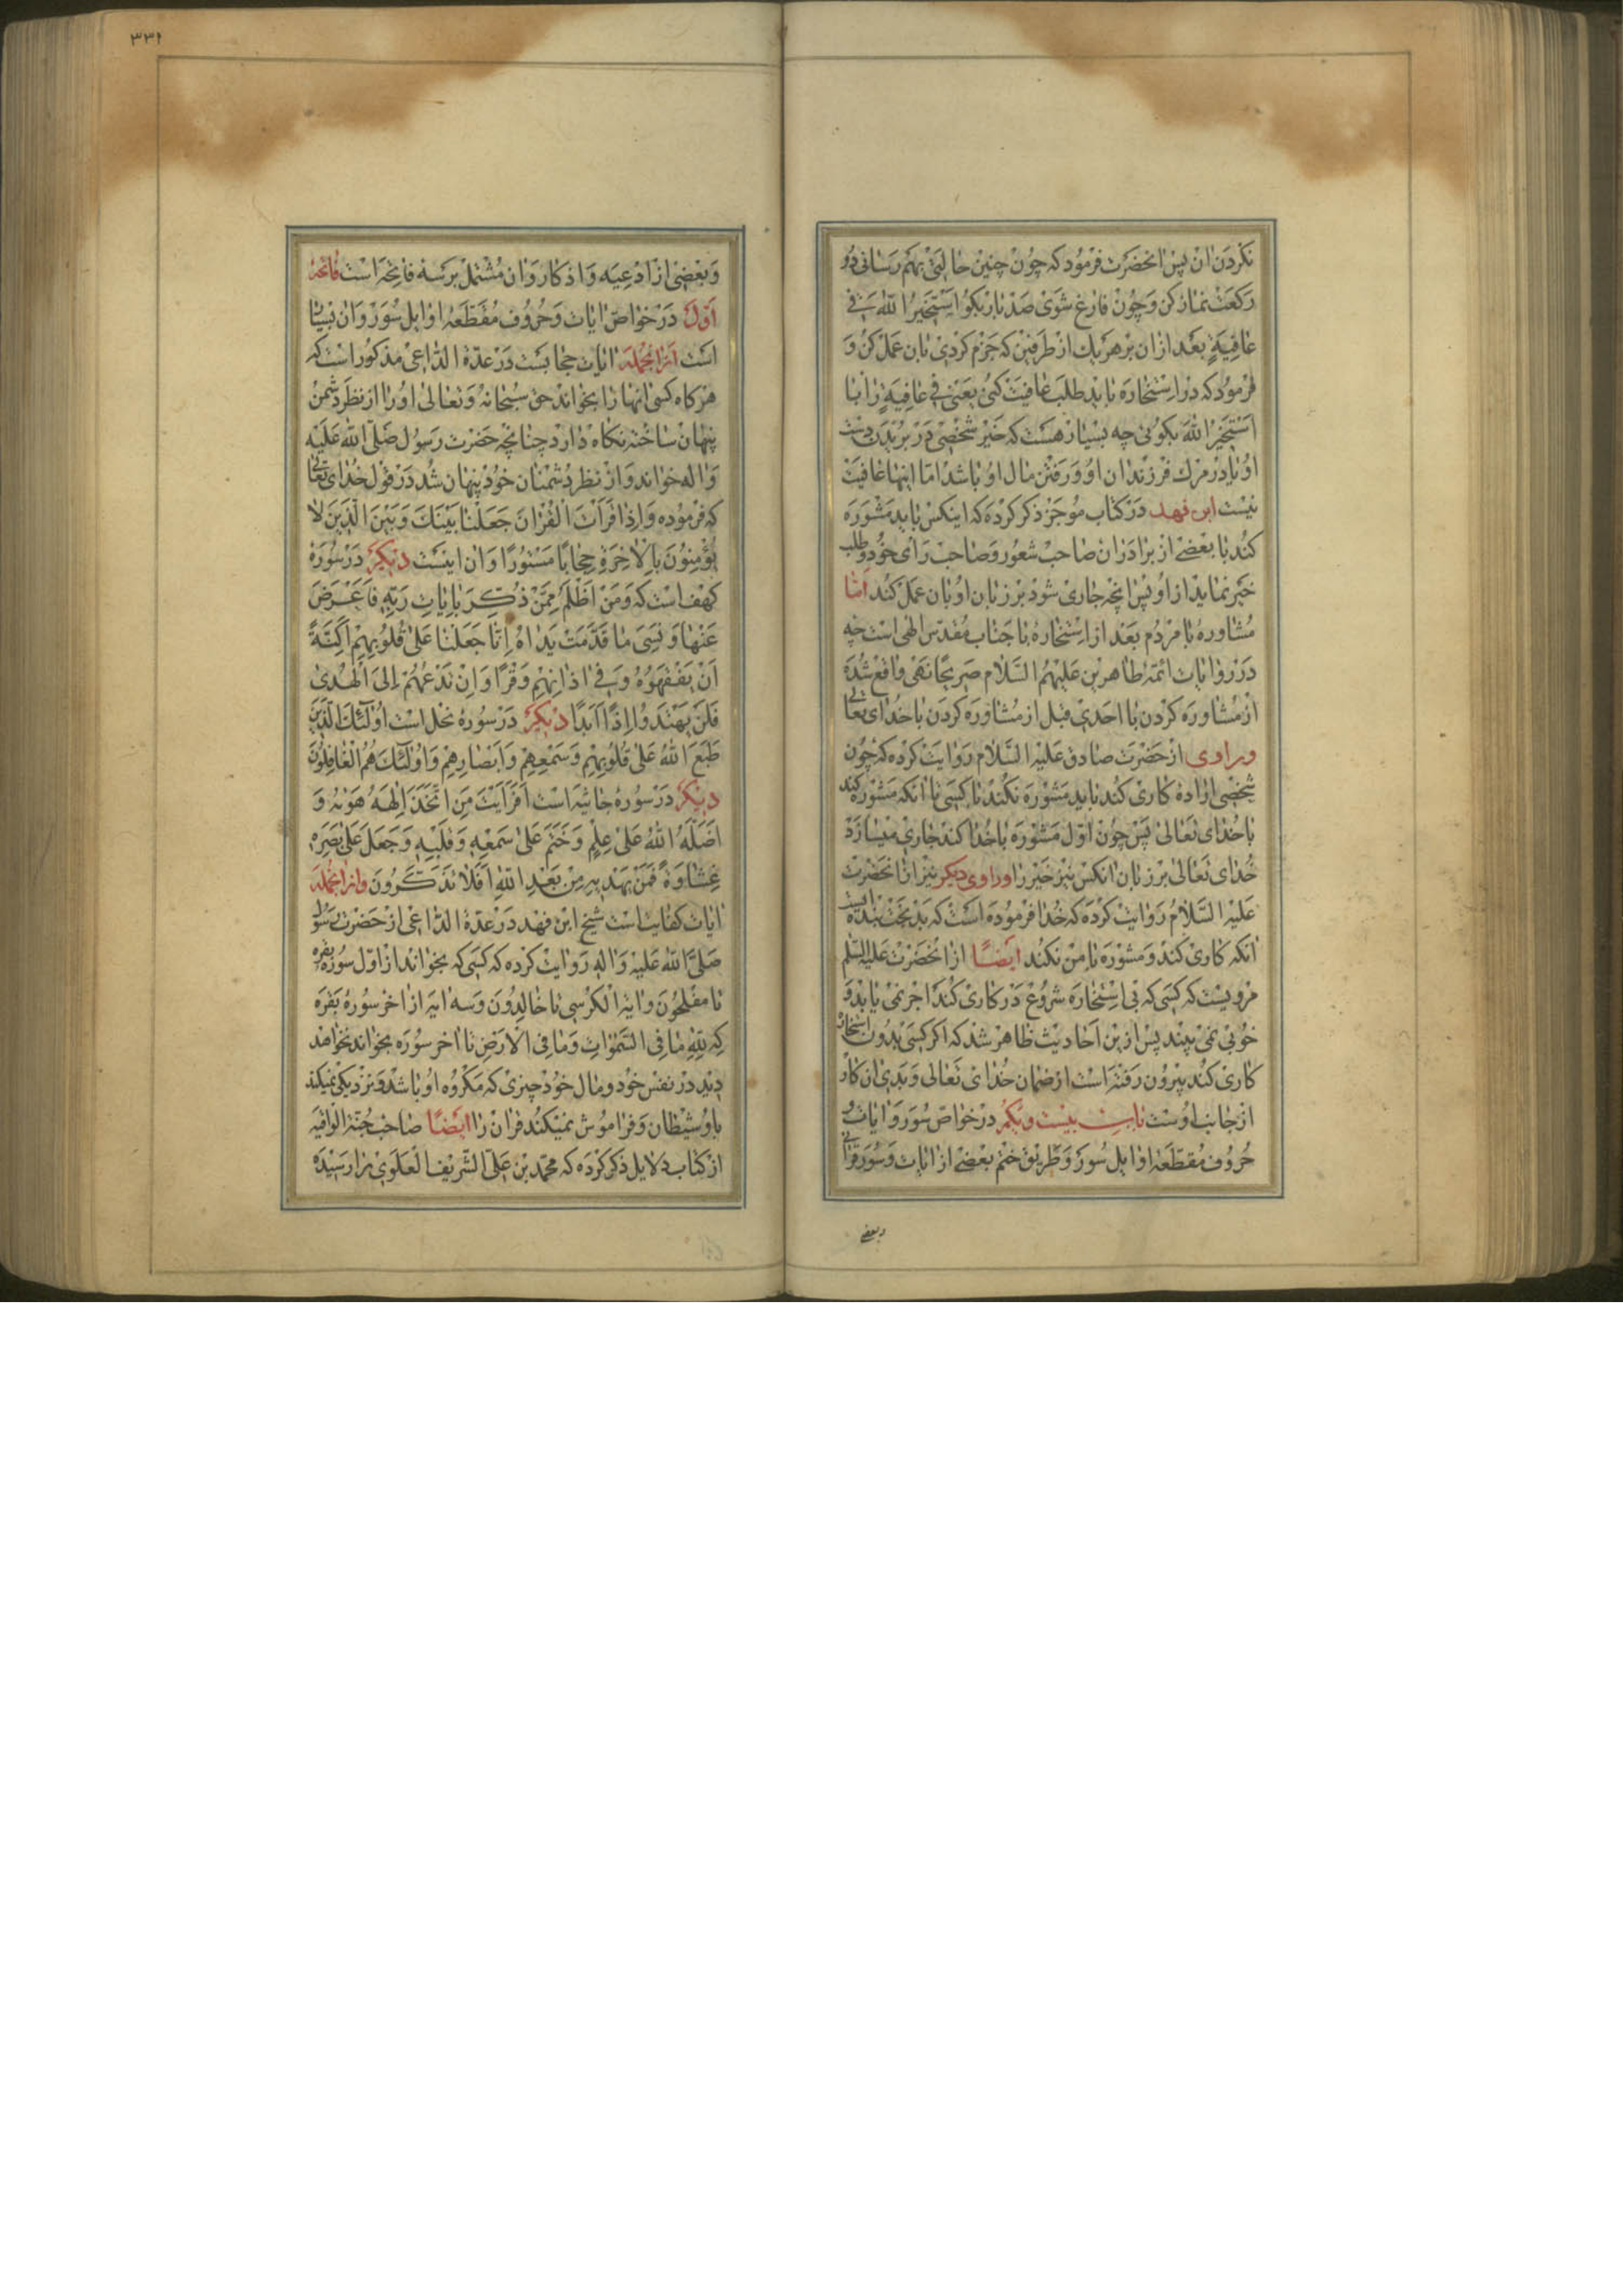 نکردن ان پس انحضرت فرمود که چون چنین حالتی بهم رسانی دو
رکعت نماز کن و چون فارغ شوی صد بار بکو استخیر الله فی
عافیة بعد ازان بر هر یک از طرفین که جزم کردی بان عمل کن و
فرمود که در استخاره باید طلب عافیت کنی یعنی فی عافیة را با
استخیر الله بکوئی چه بسیار هست که خیر شخصی در بریدن دست
او یا در مرک فرزندان او و رفتن مال او باشد اما اینها عافیت
نیست ابن فهد در کتاب موجز ذکر کرده که اینکس باید مشوره
کند با بعضی از برادران صاحب شعور و صاحب رای خود و طلب
خیر نماید از او پس انچه جاری شود بر زبان او بان عمل کند اما
مشاوره با مردم بعد از استخاره با جناب مقدس الهی است چه
در روایات ائمه طاهرین علیهم السلام صریحا نهی واقع شده
از مشاوره کردن با احدی قبل از مشاوره کردن با خدای تعالی
وراوی از حضرت صادق علیه السلام روایت کرده که چون
شخصی اراده کاری کند باید مشوره نکند با کسی تا انکه مشوره کند
با خدای تعالی پس چون اول مشوره با خدا کند جاری میسازد
خدای تعالی بر زبان انکس نیز خیر را و راوی دیکر نیز از انحضرت
علیه السلام روایت کرده که خدا فرموده است که بدبخت بنده ایست
انکه کاری کند و مشوره با من نکند ایضا از انحضرت علیه السلم
مرویست که کسی که بی استخاره شروع در کاری کند اجر نمی یابد و
خوبی نمی بیند پس ازین احادیث ظاهر شد که اکر کسی بدون استخاره
کاری کند بیرون رفته است از ضمان خدای تعالی و بدی ان کار
از جانب اوست باب بیست ویکم در خواص سور و ایات و
حروف مقطعه اوایل سور و طریق ختم بعضی از ایات و سور قرانی
وبعضی
۳۳۱
و بعضی از ادعیه و اذکار و ان مشتمل بر سه فاتحه است فاتحه
اول در خواص ایات و حروف مقطعه اوایل سور و ان بسیار
است ازانجمله ایات حجابست در عدة الداعی مذکور است که
هرکاه کسی انها را بخواند حق سبحانه و تعالی او را از نظر دشمن
پنهان ساخته نکاه دارد چنانچه حضرت رسول صلی الله علیه
واله خواند و از نظر دشمنان خود پنهان شد در قول خدای تعالی
که فرموده و اذا قرأت القران جعلنا بینک و بین الذین لا
یؤمنون بالاخرة حجابا مستورا و ان اینست دیکر در سوره
کهف است که و من اظلم ممن ذکر بایات ربه فاعرض
عنها و نسی ما قدمت یداه انا جعلنا علی قلوبهم اکنة
ان یفقهوه و فی اذانهم وقرا و ان تدعهم الی الهدی
فلن یهتدوا اذا ابدا دیکر در سوره نحل است اولئک الذین
طبع الله علی قلوبهم و سمعهم و ابصارهم و اولئک هم الغافلون
دیکر در سوره جاثیه است افرأیت من اتخذ الهه هویه و
اضله الله علی علم و ختم علی سمعه و قلبه و جعل علی بصره
غشاوة فمن یهدیه من بعد الله افلا تذکرون وازانجمله
ایات کفایت است شیخ ابن فهد در عدة الداعی از حضرت رسول
صلی الله علیه و اله روایت کرده که کسی که بخواند از اول سوره بقره
تا مفلحون و ایة الکرسی تا خالدون و سه ایه از اخر سوره بقره
که لله ما فی السموات و ما فی الارض تا اخر سوره بخواند نخواهد
دید در نفس خود و مال خود چیزی که مکروه او باشد و نزدیکی نمیکند
باو شیطان و فراموش نمیکند قران را ایضا صاحب جنة الواقیه
از کتاب دلایل ذکر کرده که محمد بن علی الشریف العلوی را رسیده